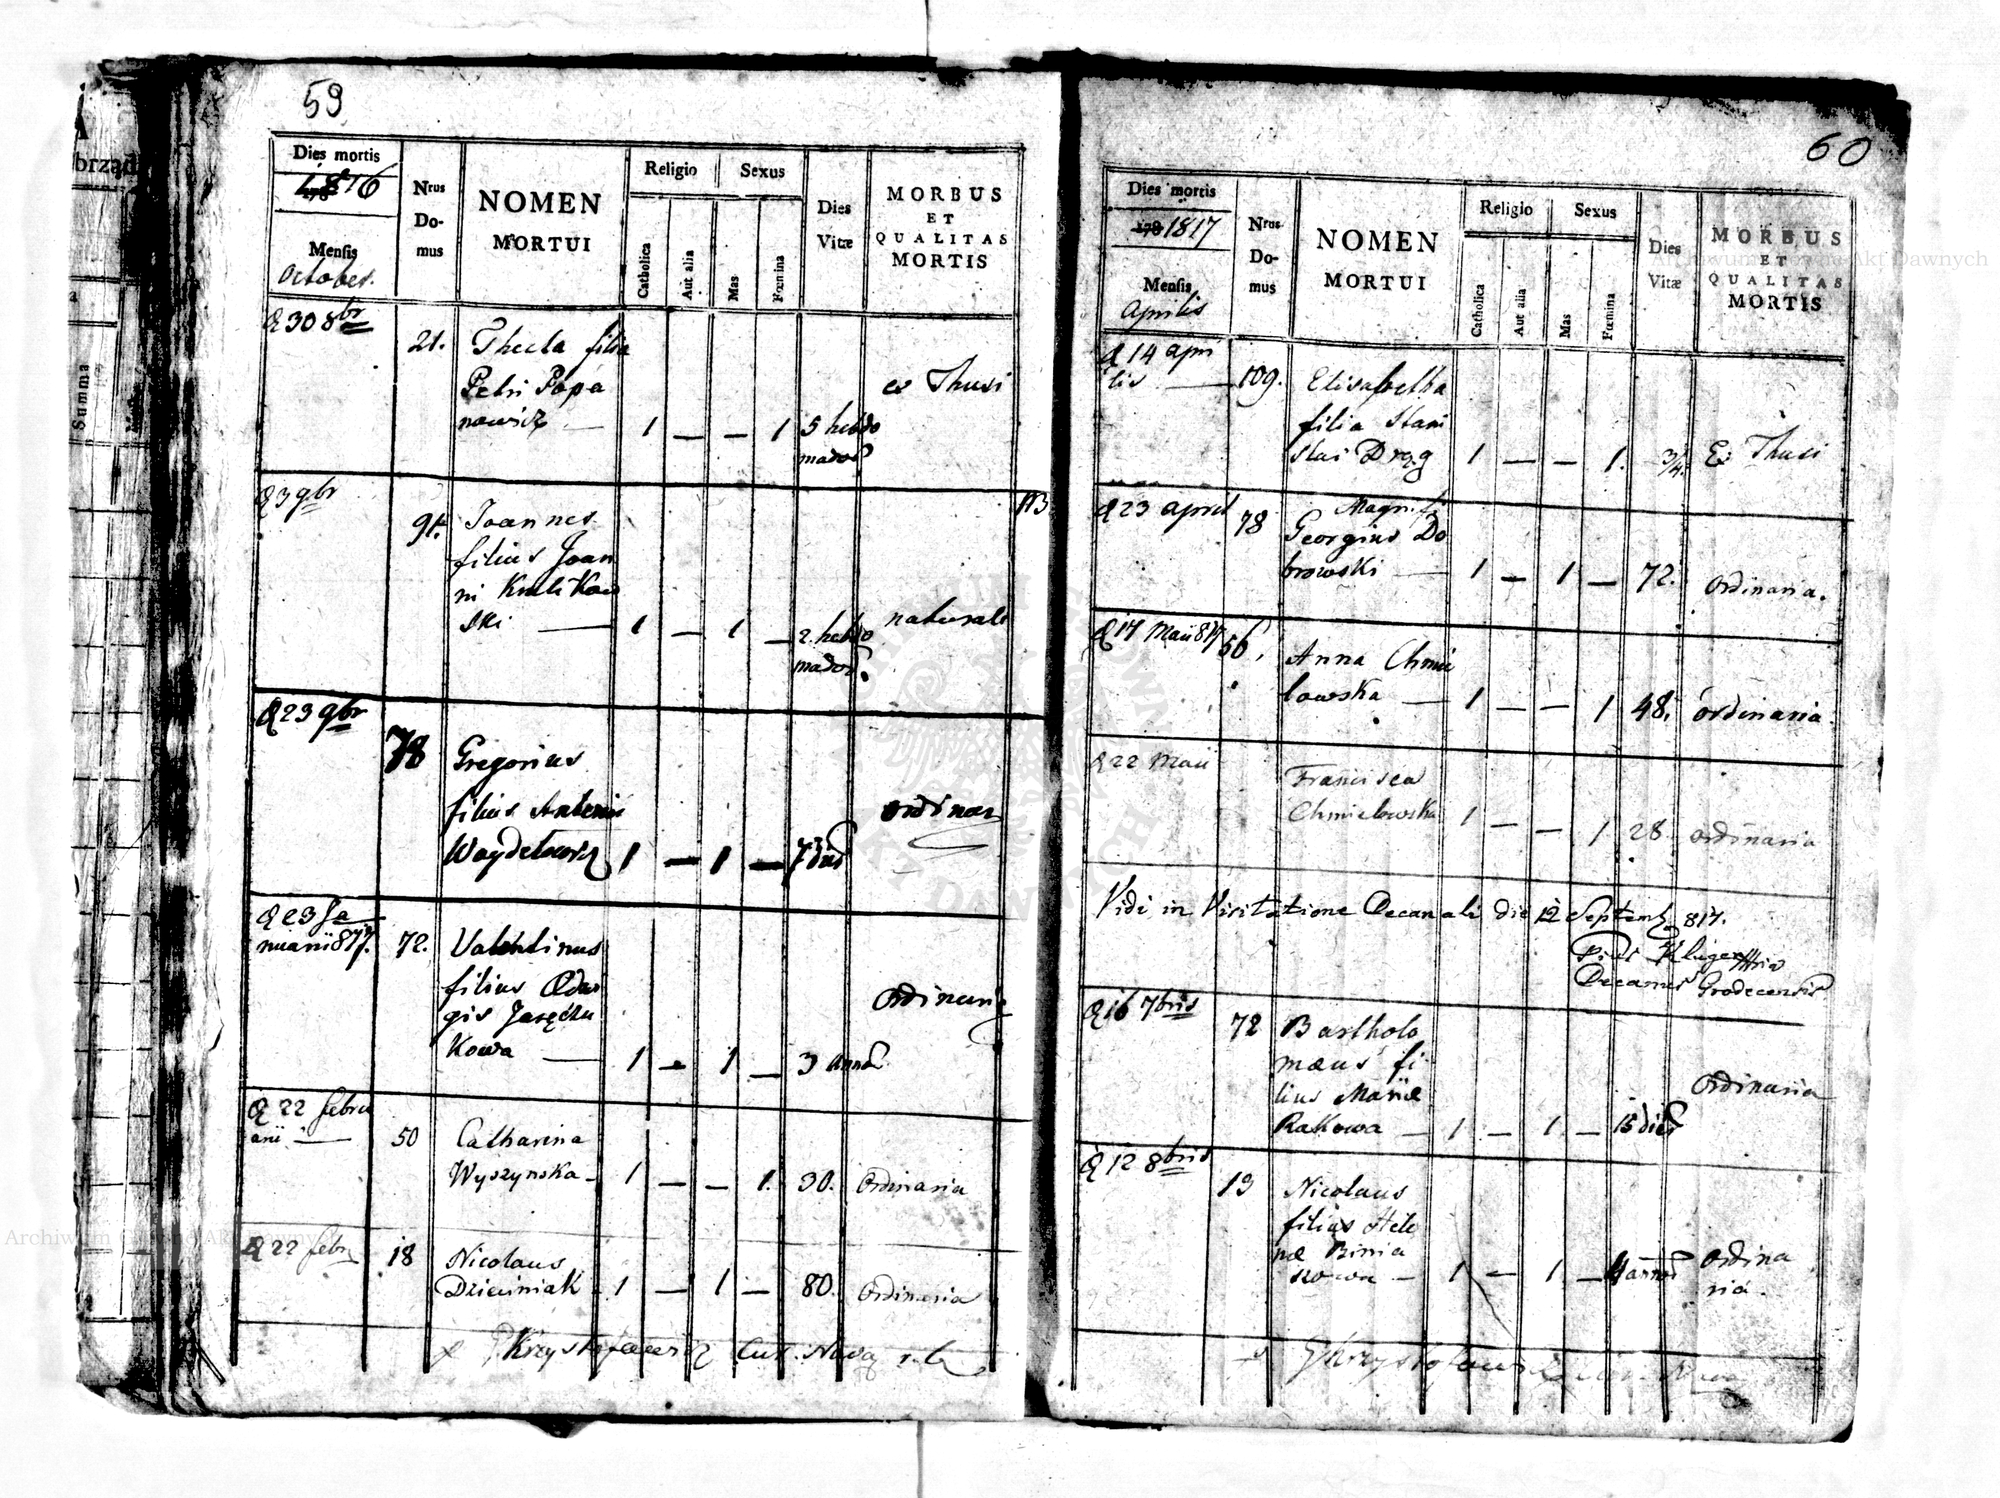 59
Dies mortis
1816
Mensis
October.
Nrus
Do-
mus
NOMEN
MORTUI
Religio
Sexus
Catholica
Aut alia
Mas
Fœmina
Dies
Vitæ
MORBUS
ET
QUALITAS
MORTIS
30 8br
21. Thecla filia
Petri Popa
nowicz — 1 — — 1 5 hebdo
mados
ex Thusi
3 9br
91. Joannes
filius Joan
ni Krulikow
ski — 1 — 1 — 2. hebdo
mados.
naturali
23 9br
78 Gregorius
filius Antonii
Woydetowicz 1 — 1 — 7 dies
ordinar
23 Ja
nuarii 817. 72. Valentinus
filius
gis
kowa — 1 — 1 — 3 annos
ordinaria
22 febru
arii — 50 Catharina
Wyszynska — 1 — — 1. 30. ordinaria
22 febr 18 Nicolaus
Dzieciniak 1 — 1 — 80. ordinaria
Krzystofowicz Cur.
60
Dies mortis
178 1817
Mensis
Aprilis
Nrus
Do-
mus
NOMEN
MORTUI
Religio
Sexus
Catholica
Aut alia
Mas
Fœmina
Dies
Vitæ
MORBUS
ET
QUALITAS
MORTIS
14 apri
lis — 109. Elisabetha
filia Stani
slai Drąg 1 — — 1. 3/4. Ex Thusi
NB
23 april 78 Magnif.
Georgius Do
browski — 1 — 1 — 72. ordinaria.
17 Maii 817 56. Anna Chmie
lowska — 1 — — 1 48. ordinaria
22 Maii Francisca
Chmielowska 1 — — 1 28. ordinaria
Vidi in Visitatione Decanali die 12 Septemb. 817.
Decanus Grodecensis
16 7bris 72 Bartholo
mæus fi
lius Mariæ
Rakowa — 1 — 1. — 15 dies
ordinaria
12 8bris
13 Nicolaus
filius Hele
næ Binia
szowa — 1 — 1 — 4 annos
ordina
ria.
Krzystofowicz
Archiwum Główne Akt Dawnych
Archiwum Główne Akt Dawnych
ARCHIWUM GŁÓWNE AKT DAWNYCH
Summa